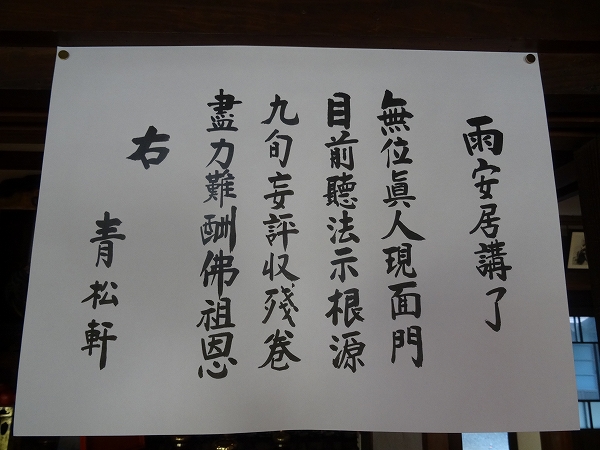 雨安居講了
無位眞人現面門
目前聽法示根源
九旬妄評収残巻
盡力難酬佛祖恩
右
青松軒